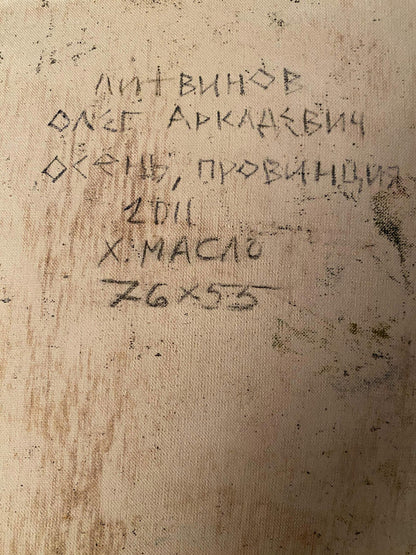 ЛИТВИНОВ
ОЛЕГ АРКАДЕВИЧ
ОСЕНЬ, ПРОВИНЦИЯ
2011
Х. МАСЛО
76×55